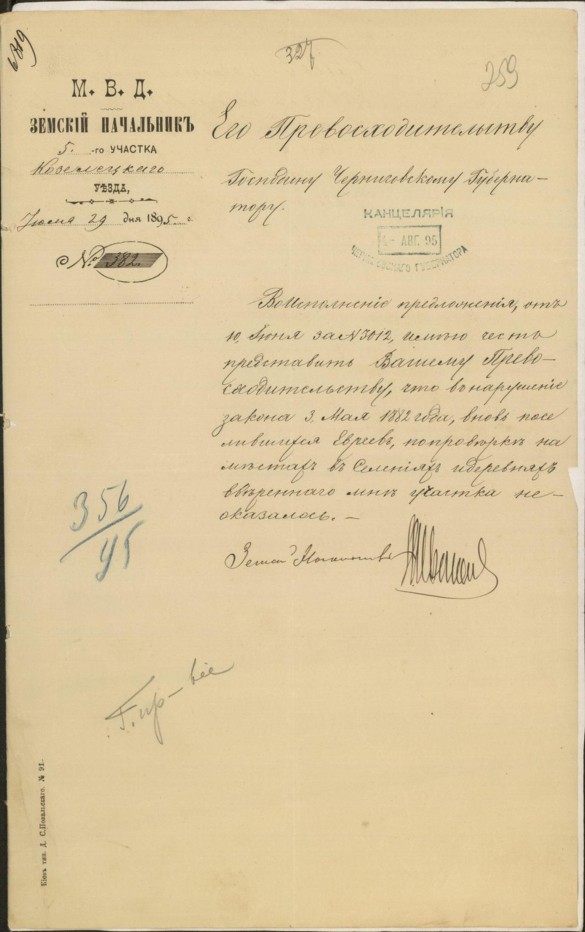 6819
327
259
М. В. Д.
ЗЕМСКІЙ НАЧАЛЬНИКЪ
5 -го УЧАСТКА
Козелецкаго
УѢЗДА,
Іюля 29 дня 1895 г.
№ 382
Его Превосходительству
Господину Черниговскому Губерна-
тору.
КАНЦЕЛЯРІЯ
АВГ. 95
ЧЕРНИГОВСКАГО ГУБЕРНАТОРА
Во исполненіе предложенія, отъ
10 Іюня за № 3012, имѣю честь
представить Вашему Прево-
сходительству, что въ нарушеніе
закона 3 Мая 1882 года, вновь посе-
лившихся Евреевъ, по провѣркѣ на
мѣстахъ въ селеніяхъ и деревняхъ
ввѣреннаго мнѣ участка не-
оказалось. –
Земскій Начальникъ
356/95
Г. пр-ніе
Кіевъ тип. Д. С. Повальскаго. № 91.